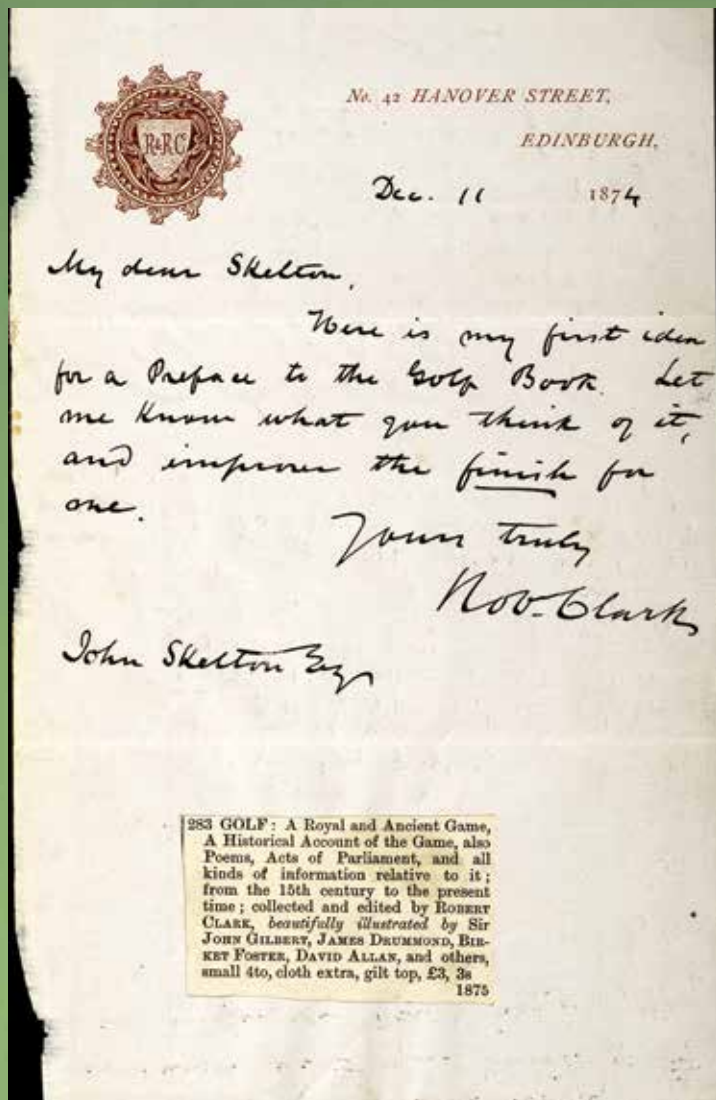 R&RC
No. 42 HANOVER STREET,
EDINBURGH,
Dec. 11 1874
My dear Skelton,
Here is my first idea
for a Preface to the Golf Book. Let
me know what you think of it,
and improve the finish for
me.
Yours truly
Rob. Clark
John Skelton Esq
283 GOLF: A Royal and Ancient Game,
A Historical Account of the Game, also
Poems, Acts of Parliament, and all
kinds of information relative to it;
from the 15th century to the present
time; collected and edited by ROBERT
CLARK, beautifully illustrated by Sir
JOHN GILBERT, JAMES DRUMMOND, BIR-
KET FOSTER, DAVID ALLAN, and others,
small 4to, cloth extra, gilt top, £3, 3s
1875